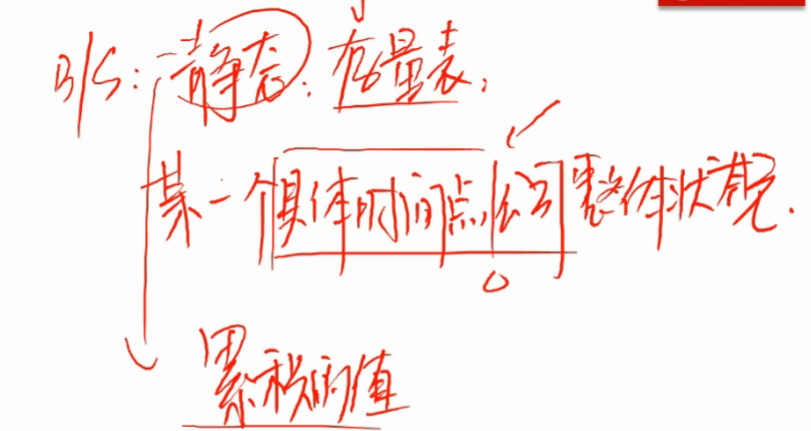 B/S: 静态. 存量表,
某一个具体时间点公司整体状况.
累积的值